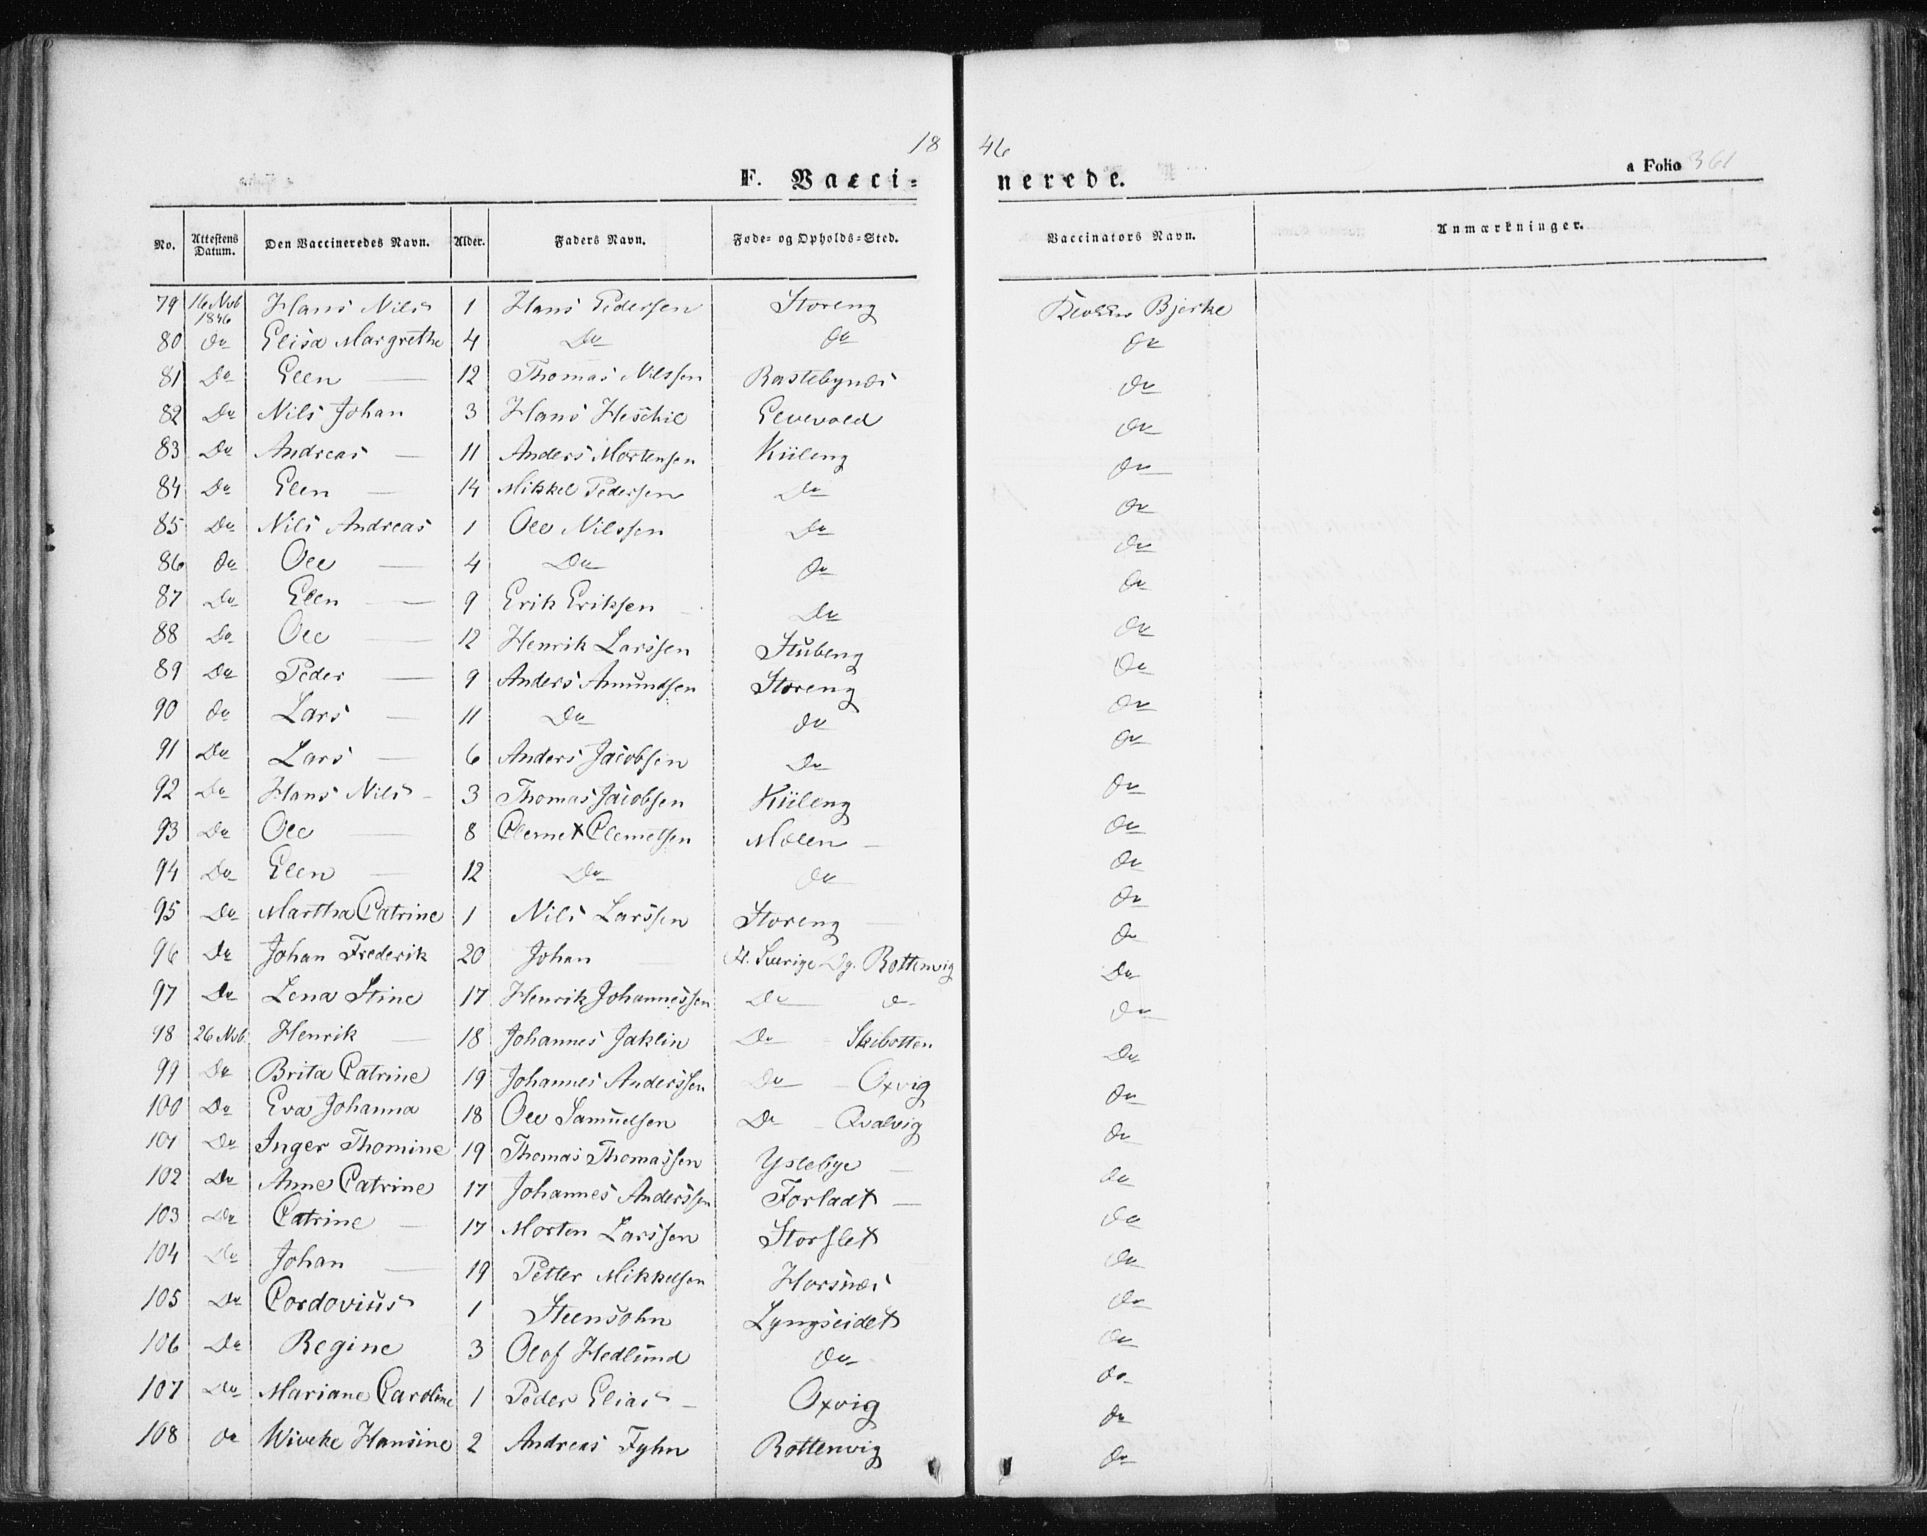 18 46
F. Vacci- nerede. a Folio 361
No. Attestens Datum. Den Vaccineredes Navn. Alder. Faders Navn. Føde- og Opholds-Sted. Vaccinators Navn. Anmærkninger.
79 16 Nvb 1846 Hans Nils 1 Hans Pedersen Storeng Klokker Bjerke
80 do Elisa Margrethe 4 Do do do
81 Do Elen — 12 Thomas Nilssen Rastebynæs do
82 Do Nils Johan 3 Hans Heschil Elvevold do
83 Do Andreas — 11 Anders Mortensen Kiileng do
84 Do Elen — 14 Mikkel Pedersen Do do
85 Do Nils Andreas 1 Ole Nilssen Do do
86 do Ole — 4 Do do do
87 Do Elen — 9 Erik Eriksen Do do
88 Do Ole — 12 Henrik Larssen Stubeng do
89 Do Peder — 9 Anders Amundsen Storeng do
90 do Lars — 11 Do do do
91 Do Lars — 6 Anders Jacobsen Do do
92 Do Hans Nils 3 Thomas Jacobsen Kiileng do
93 Do Ole — 8 Clemet Clemetsen Molen do
94 Do Elen — 12 Do do do
95 Do Martha Catrine 1 Nils Larssen Storeng — do
96 Do Johan Frederik 20 Johan — F. Sverige Og. Rottenvig do
97 Do Lena Stine 17 Henrik Johannessen Do d Do
98 26 Nvb Henrik — 18 Johannes Jaklin Do Skibotten do
99 Do Brita Catrine 19 Johannes Anderssen Do — Oxvig Do
100 Do Eva Johanna 18 Ole Samuelsen Do Qvalvig do
101 Do Inger Thomine 19 Thomas Thomassen Yslebye — do
102 Do Anne Catrine 17 Johannes Anderssen Forladt — do
103 Do Catrine — 17 Morten Larssen Storslet do
104 Do Johan — 19 Petter Mikkelsen Horsnæs do
105 Do Cordovius 1 Steensohn Lyngseidet do
106 Do Regine 3 Olof Hedlund do do
107 Do Mariane Caroline 1 Peder Elias — Oxvig do
108 do Wiveke Hansine 2 Andreas Fyhn Rottenvig do
do